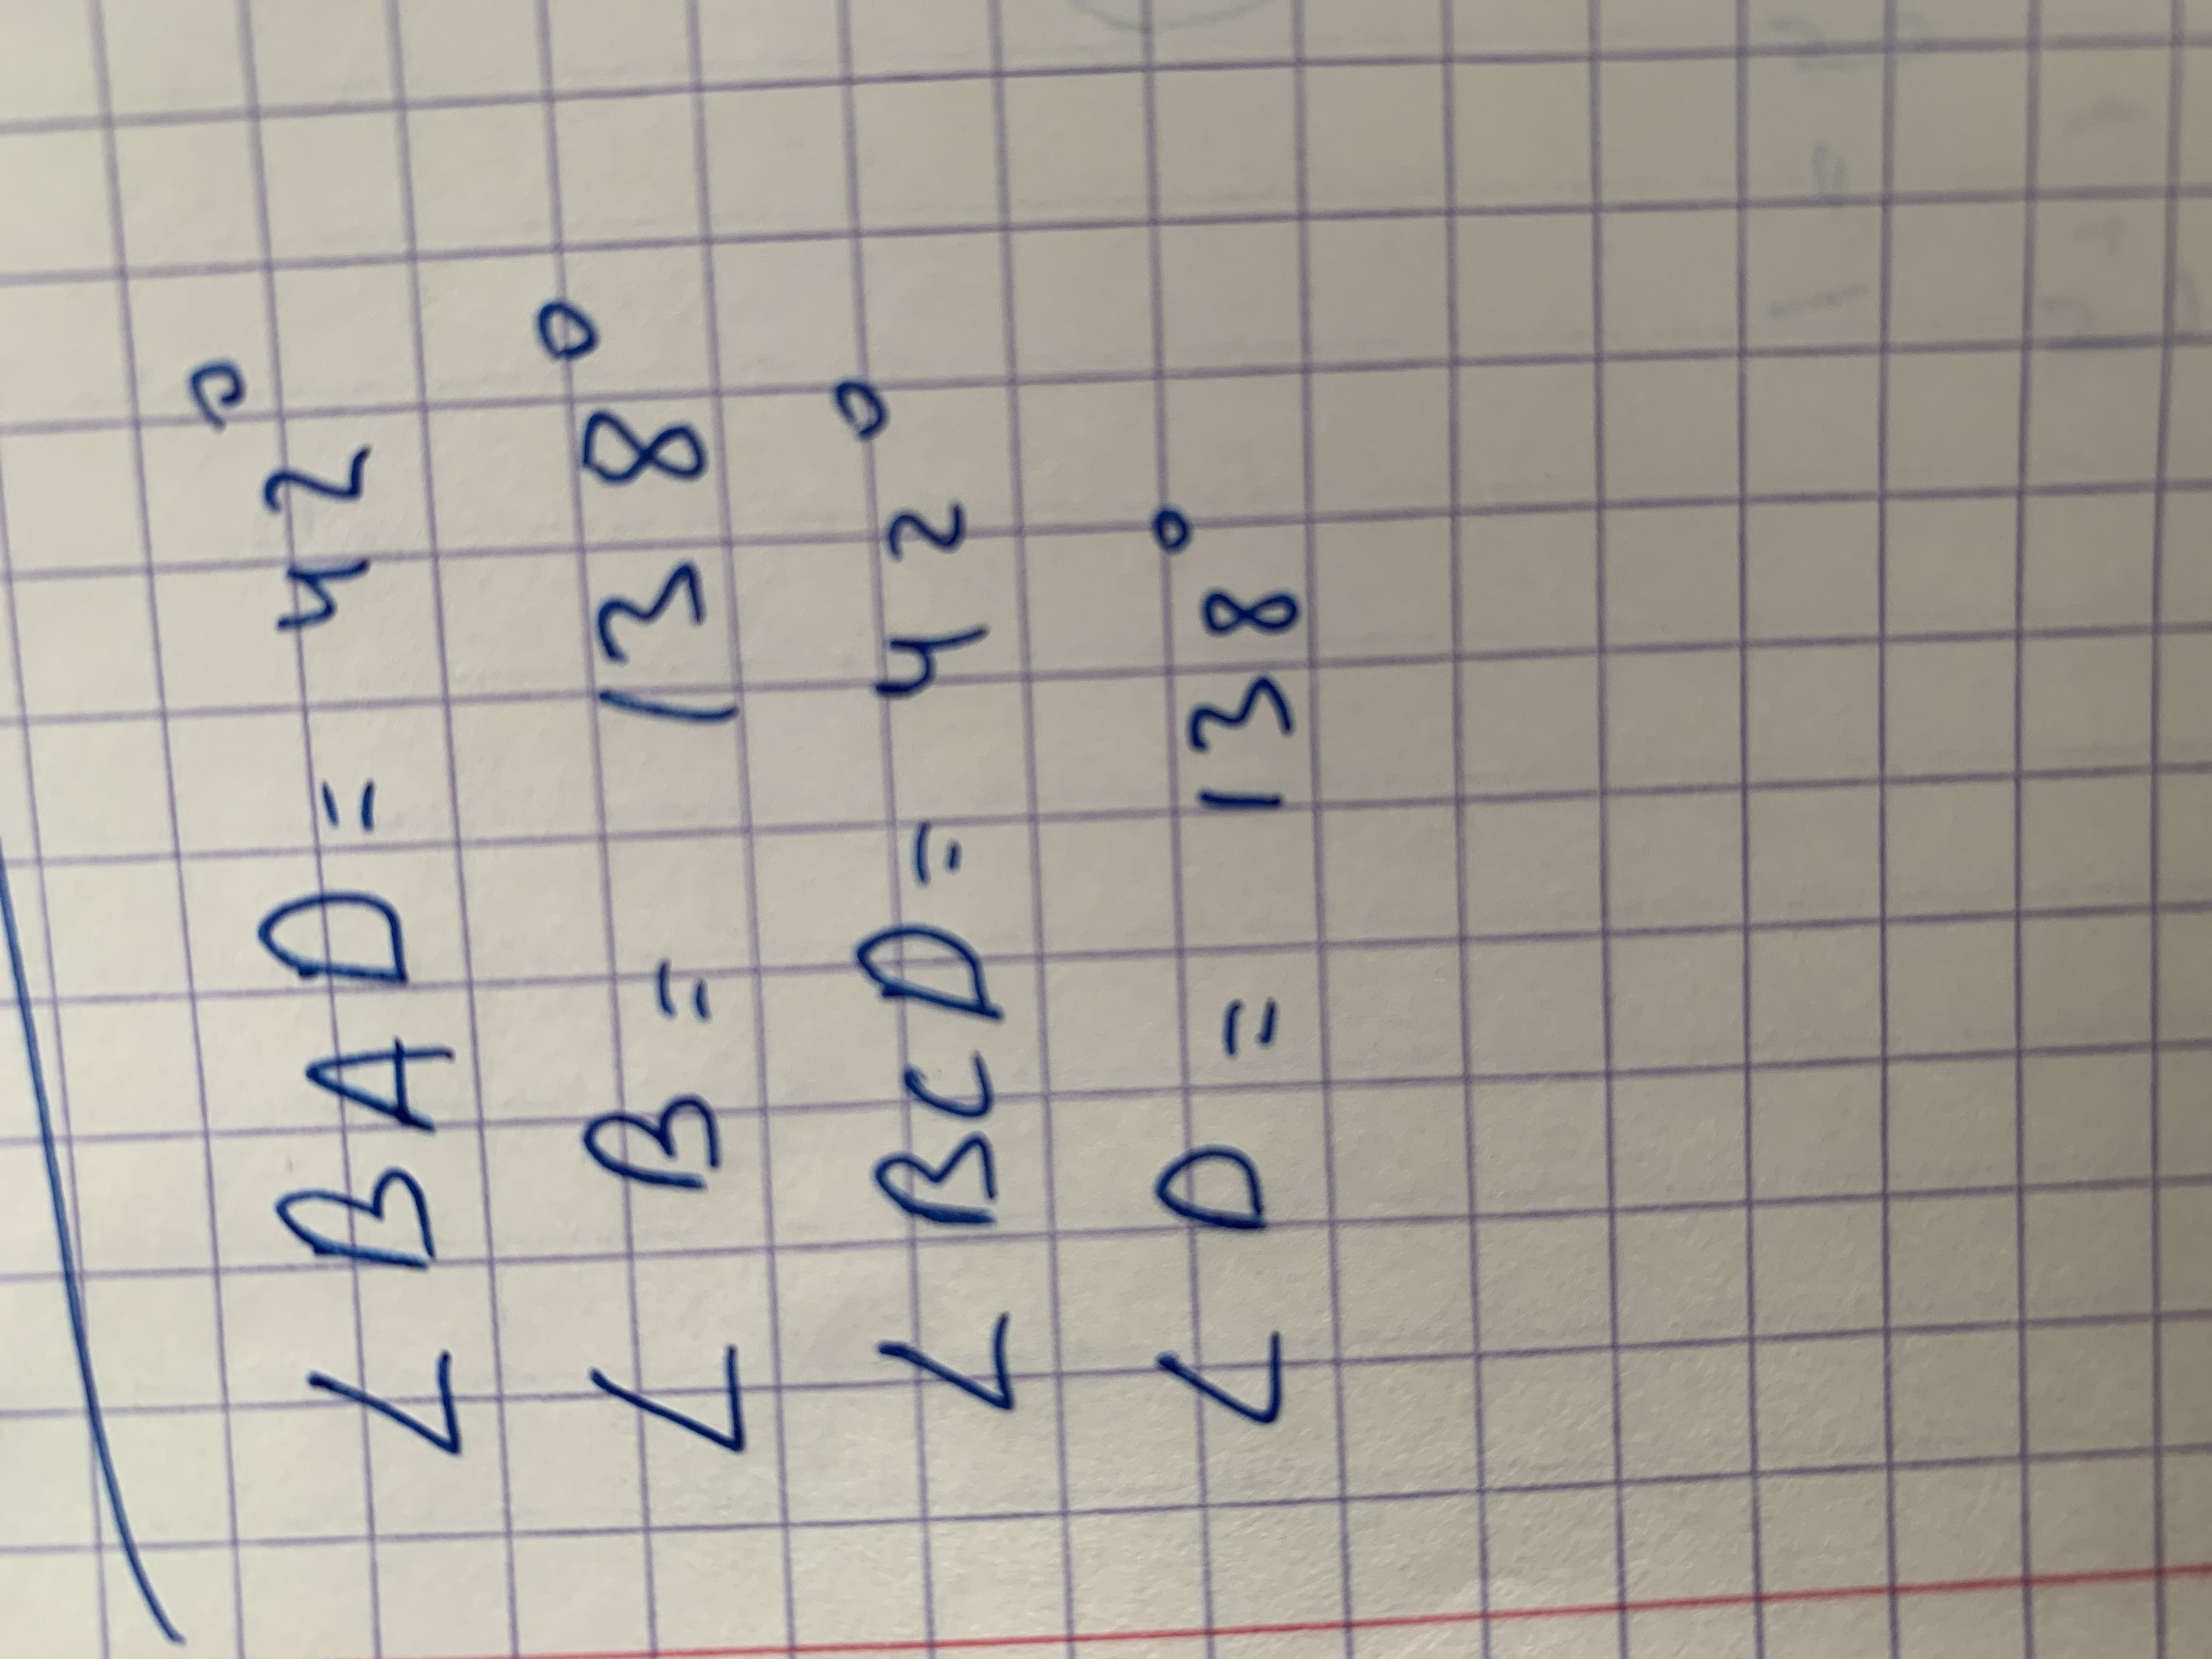 ∠ BAD = 42°
∠ B = 138°
∠ BCD = 42°
∠ D = 138°